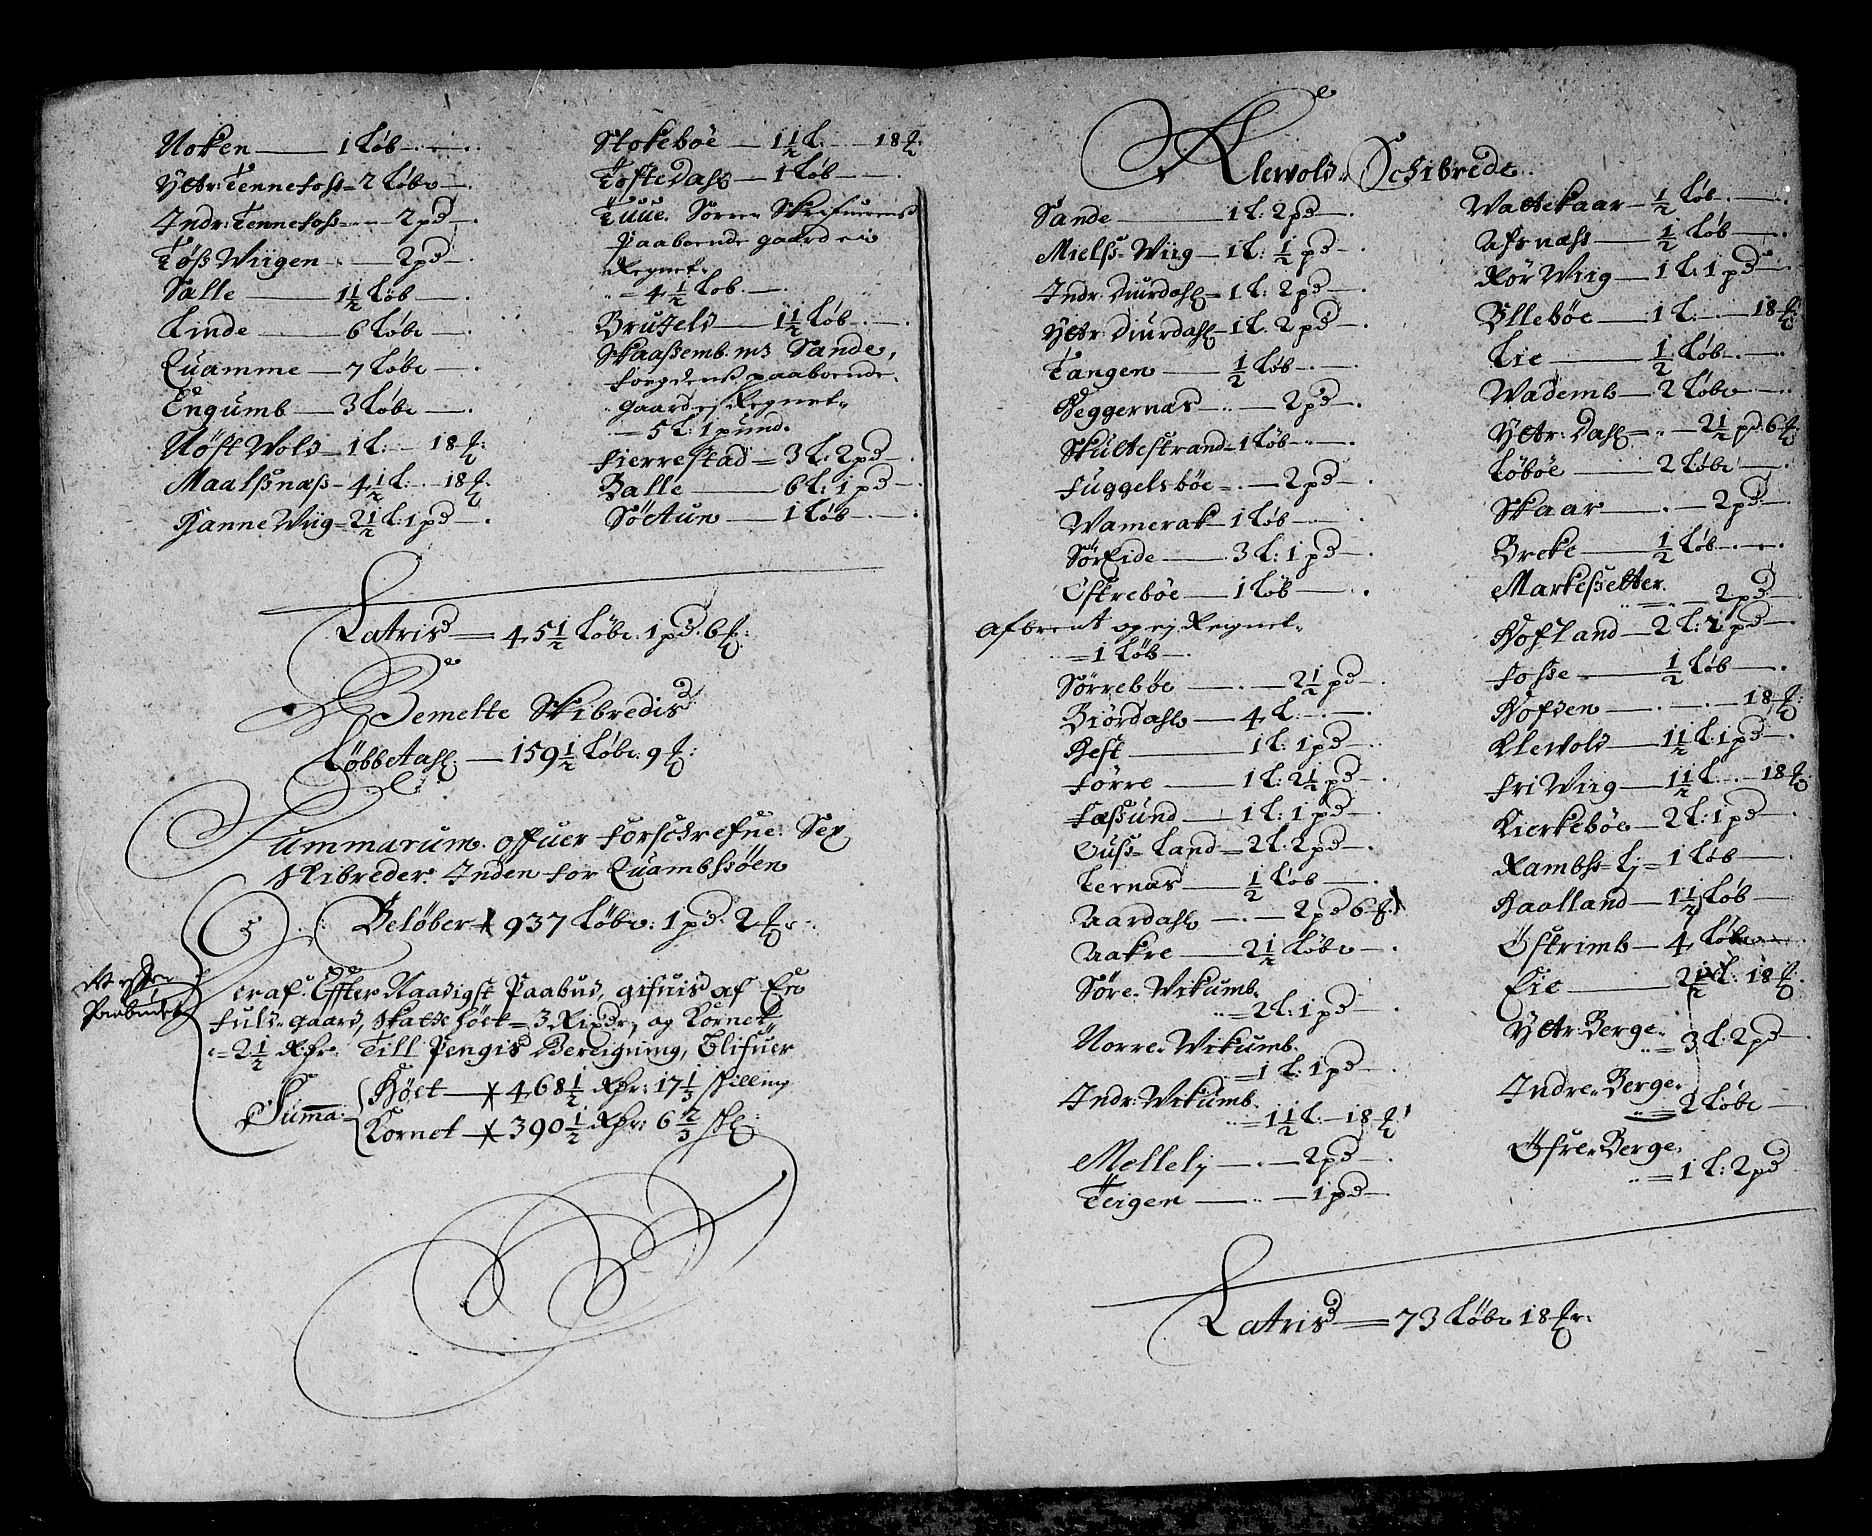 Noken — 1 Løb —
Ÿttr: Tennefoss = 2 Løbe —
Indr: Tennefoss — 2 pd —
Töss Wiigen — 2 pd —
Salle — 1 1/2 Løb —
Linde — 6 Løbe —
Quamme — 7 Løbe —
Engumb — 3 Løbe —
Nöst Wold — 1 L: — 18 £:
Maalssnæss — 4 1/2 L: — 18 £.
Hanne Wiig = 2 1/2 L: 1 pd —
Stokebøe — 1 1/2 L: — 18 £:
Toftedahl — 1 Løb —
Tuue. Soren Skrifuerens
Paaboende gaard ei
Regnet.
= 4 1/2 Løb. —
Brufeld — 1 1/2 Løb —
Skaassemb. m3 Sande,
fogdens paaboende
gaard ej Regnet
— 5 L: 1 pund.
Fierrestad = 3 L: 2 pd —
Balle — 6 L: 1 pd —
Söetun — 1 Løb —
Latris = 45 1/2 Løbe. 1 pd. 6 £:
Bemelte Skibredis
Løbbetahl. — 159 1/2 Løbe. 9 £:
Summarum. offuer forschrefne. Sex
Skibreder. Inden for Quambssöen
Beløber 937 Løbe: 1 pd. 2 £r.
Paabudet
eraf. Effter Naadigst Paabud, gifuis af En
fuld-gaard, Skatte höet = 3 Rixdr, og Kornet
= 2 1/2 Rdr. Till Pengis Beregning, Blifuer
Suma:
Höet — 468 1/2 Rdr: 17 1/3 skilling
Kornet — 390 1/2 Rdr: 6 2/3 sk:
Klewold. Schibrede.
Sande — 1 L: 2 pd —
Mielss-Wiig — 1 L: 1/2 pd —
Indr. Diurdahl = 1 L: 2 pd —
Ÿttr Diurdahl — 1 L. 2 pd —
Tangen — 1/2 Løb —
Heggernæs — 2 pd —
Skultestrand = 1 Løb —
Fuggelsbøe = — 2 pd —
Wamerak — 1 Løb —
Sör Eide — 3 L: 1 pd —
Östrebøe — 1 Løb —
Afbrent og ej Regnet
= 1 Løb —
Sörrebøe — 2 1/2 pd —
Biördahl — 4 L: —
Hest — 1 L: 1 pd —
Förre — 1 L: 2 1/2 pd —
Fæssund — 1 L: 1 pd —
Ouss-Land = 2 L. 2 pd —
Lernæs — 1/2 Løb —
Aardahl — 2 pd 6 £:
Aakre — 2 1/2 Løbe —
Söre. Wikumb.
= 2 L: 1 pd —
Norre. Wikumb.
= 1 L: 1 pd —
Indr: Wikumb.
= 1 1/2 L. — 18 £
Mollelj — 2 pd —
Teigen — 1 pd —
Wattekaar — 1/2 Løb —
Afsnæss — 1/2 Løb —
Rör Wiig — 1 L: 1 pd —
Ollebøe — 1 L: — 18 £:
Lie — 1/2 Løb —
Wademb — 2 Løbe —
Ÿttr: Dahl = — 2 1/2 pd. 6 £
Løbøe — 2 Løbe —
Skaar — 2 pd —
Breke — 1/2 Løb —
Markessetter.
= — 2 pd —
Hofland — 2 L: 1 pd —
Fosse — 1/2 Løb —
Hofden — 18 £:
Klewold — 1 1/2 L: 1 pd —
Fri Wiig — 1 1/2 L: — 18 £:
Kierkebøe — 2 L: 1 pd —
Rambss-Lj = 1 Løb —
Haalland — 1 1/2 Løb —
Östrimb — 4 Løbe —
Eie — 2 1/2 L: 18 £:
Ÿttr. Berge.
= 3 L: 2 pd —
Indre. Berge.
= 2 Løbe —
Öfre. Berge.
= 1 L: 2 pd
Latris = 73 Løbe 18 £r.